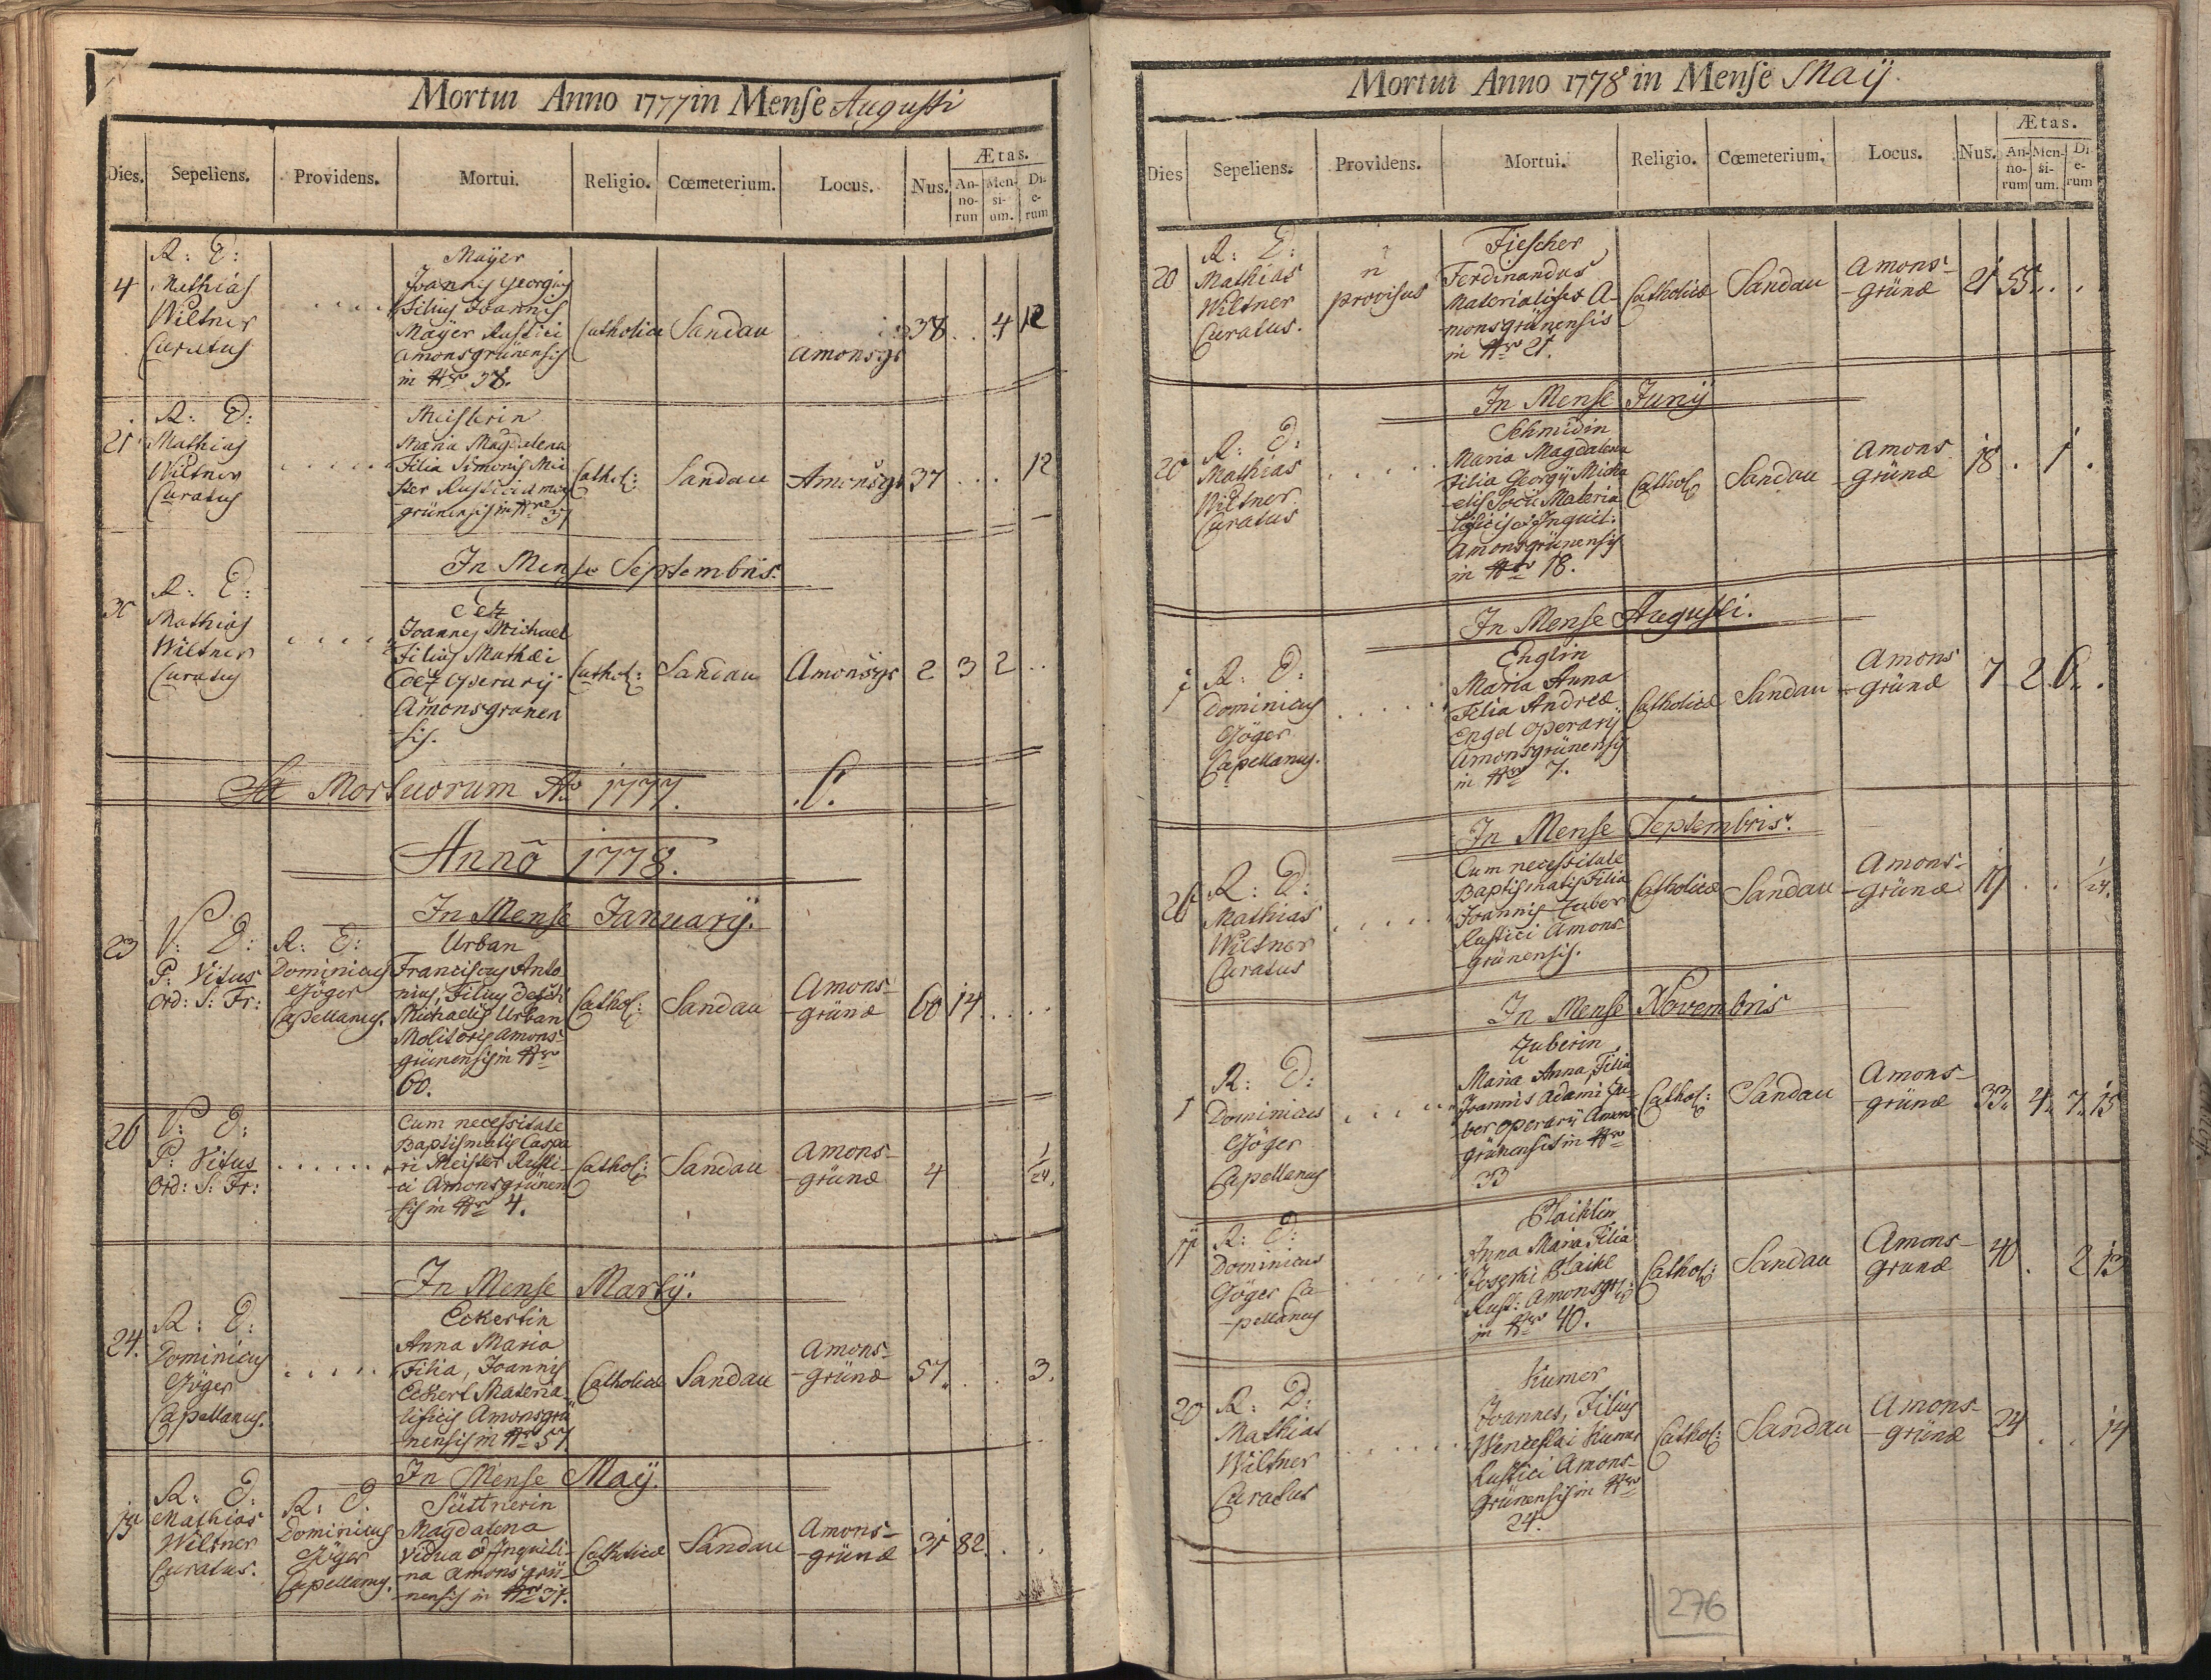 Mortui Anno 1777 in Mense Augusti
Dies. Sepeliens. Providens. Mortui. Religio. Cœmeterium. Locus. Nus. Ætas.
An-no-rum Men-si-um. Di-e-rum
4 R: D: Mathias Wiltner Curatus
Mayer
Joannes Georgius
Filius Joannis
Mayer Rustici
Amonsgrünensis
in Nro 38.
Catholicæ Sandau Amonsgr 38 . . 4 12
21 R: D: Mathias Wiltner Curatus
Meisterin
Maria Magdalena
Filia Simonis Mei
ster Rustici Amons
grünensis in Nro 37
Cathol: Sandau Amonsgr 37 . . . 12
In Mense Septembris.
30 R: D: Mathias Wiltner Curatus
Joannes Michael
Filius Mathæi
operarij
Amonsgrünen
sis.
Cathol: Sandau Amonsgr 2 3 2 . .
Mortuorum Ao 1777. .6.
Anno 1778.
In Mense Januarij.
23 V: D: P: Vitus Ord: S: Fr:
R: D: Dominicus Jöger Capellanus.
Urban
Franciscus Anto
nius, Filius
Michaelis Urban
Molitoris Amons-
grünensis in Nro
60.
Cathol: Sandau Amons-grünæ 60 14 . . .
26 V: D: P: Vitus Ord: S: Fr:
Cum necessitate
Baptismatis Caspa
ri Meister Rusti-
ci Amonsgrünen
sis in Nro 4.
Cathol: Sandau Amons-grünæ 4 1/24.
In Mense Martij.
24. R: D: Dominicus Jöger Capellanus.
Eckertin
Anna Maria
Filia, Joannis
Eckert Materia-
lificis Amonsgrü
nensis in Nro 57
Catholicæ Sandau Amons-grünæ 57 . . 3.
In Mense Maij.
19 R: D: Mathias Wiltner Curatus.
R: D. Dominicus Jöger Capellanus.
Süttnerin
Magdalena
Vidua et Inquili-
na Amonsgrü-
nensis in Nro 31.
Catholicæ Sandau Amons-grünæ 31 82 . .
Mortui Anno 1778 in Mense Maij.
Dies Sepeliens. Providens. Mortui. Religio. Cœmeterium. Locus. Nus. Ætas.
An-no-rum Men-si-um. Di-e-rum
20 R: D: Mathias Wiltner Curatus.
n provisus
Fiescher
Ferdinandus
Materialifex A-
monsgrünensis
in Nro 21.
Catholicæ Sandau Amons-grünæ 21 55 . .
In Mense Junij
20 R: D: Mathias Wiltner Curatus
Schmidin
Maria Magdalena
Filia Georgij Micha
elis Materia
lificis et Inquil:
Amonsgrünensis
in Nro 18.
Cathol Sandau Amons grünæ 18 . 1 .
In Mense Augusti.
7 R: D: Dominicus Jöger Capellanus.
Englin
Maria Anna
Filia Andreæ
Engel operarij
Amonsgrünensis
in Nro 7.
Catholicæ Sandau Amons grünæ 7 2 6 .
In Mense Septembris.
26 R: D: Mathias Wiltner Curatus
Cum necessitate
Baptismatis Filia
Joannis Zuber
Rustici Amons-
grünensis.
Catholicæ Sandau Amons-grünæ 19 . . 1/24.
In Mense Novembris
1 R: D: Dominicus Jöger Capellanus
Zuberin
Maria Anna, Filia
Joannis Adami Zu-
ber operarij Amons
grünensis in Nro
33
Cathol: Sandau Amons-grünæ 33 4 7 15
11 R: D: Dominicus Jöger Ca-pellanus
Plaiklin
Anna Maria Filia
Josephi Plaikl
Rust: Amonsgr:
in Nro 40.
Cathol: Sandau Amons-grünæ 40 . 2 13
20 R: D: Mathias Wiltner Curatus
Kumer
Joannes, Filius
Wenceslai Kumer
Rustici Amons-
grünensis in Nro
24.
Cathol: Sandau Amons-grünæ 24 . . 14
276